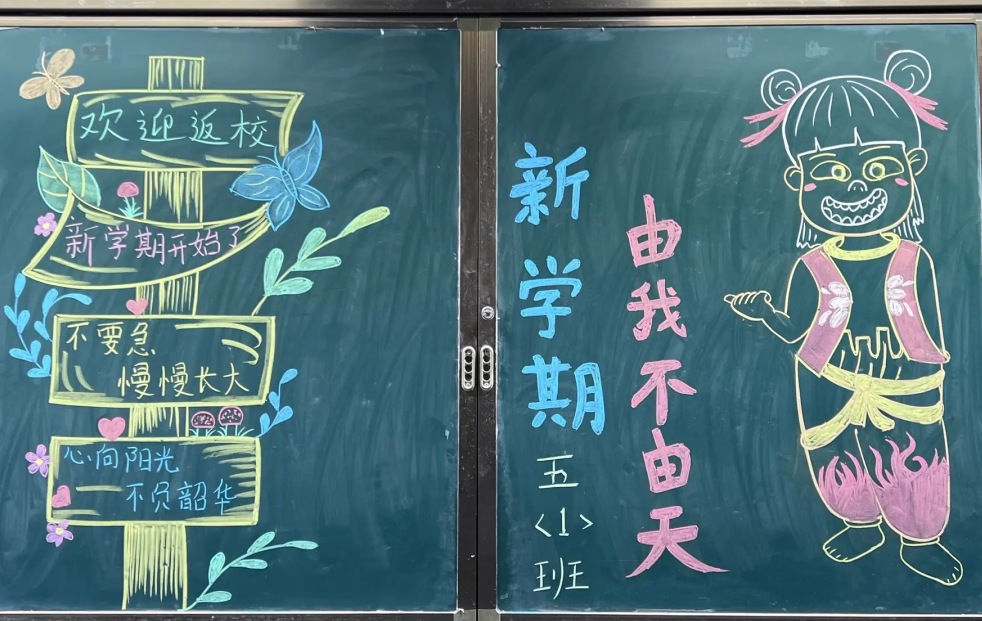 欢迎返校
新学期开始了
不要急
慢慢长大
心向阳光
不负韶华
新学期
由我不由天
五
<1>
班